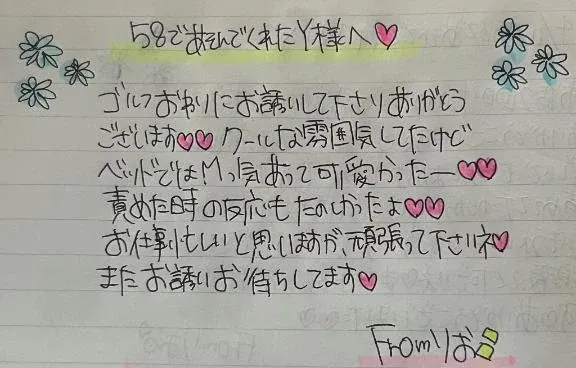 58であそんでくれたY様へ♡
ゴルフおわりにお誘いして下さりありがとう
ございます♡♡ クールな雰囲気してたけど
ベッドではMっ気あって可愛かったー♡♡
責めた時の反応もたのしかったよ♡♡
お仕事忙しいと思いますが、頑張って下さいネ♡
またお誘いお待ちしてます♡
Fromりお